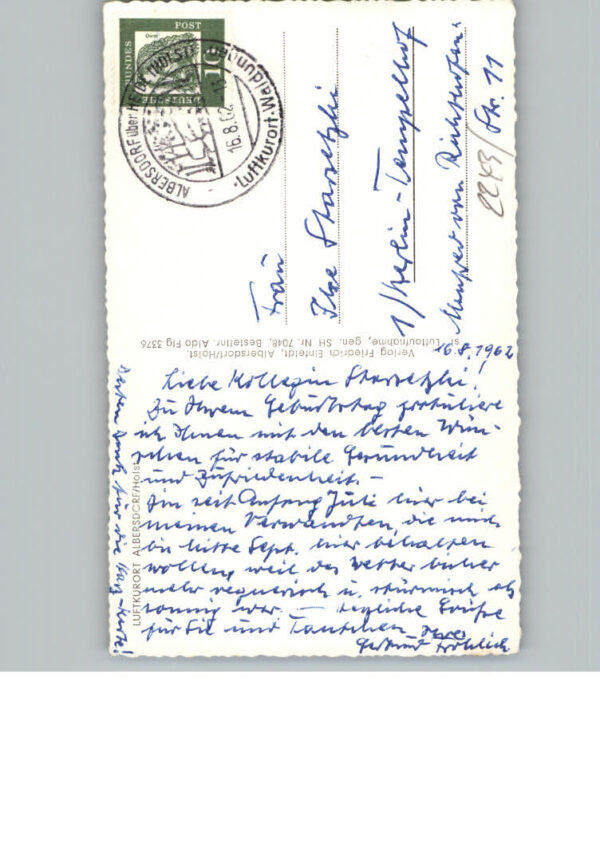 DEUTSCHE BUNDESPOST
10
ALBERSDORF über HEIDE (HOLST)
16.8.62
Luftkurort · Waldungen
Frau
Ilse Starsetzki
1/Berlin-Tempelhof
Manfred von Richthofen-
Str. 11
2243/
Verlag Friedrich Einfeldt, Albersdorf/Holst.
Luftaufnahme, gen. SH Nr. 7048, Bestellnr. Aldo Flg 3376
LUFTKURORT ALBERSDORF/Holst
16.8.1962
Liebe Kollegin Starsetzki!
Zu Ihrem Geburtstag gratuliere
ich Ihnen mit den besten Wün-
schen für stabile Gesundheit
und Zufriedenheit. –
Bin seit Anfang Juli hier bei
meinen Verwandten, die mich
bis Mitte Sept. hier behalten
wollen, weil das Wetter bisher
mehr regnerisch u. stürmisch als
sonnig war. – Herzliche Grüße
für Sie und Tantchen Ihre
Gertrud Fröhlich
Besten Dank für die Harz-Karte!